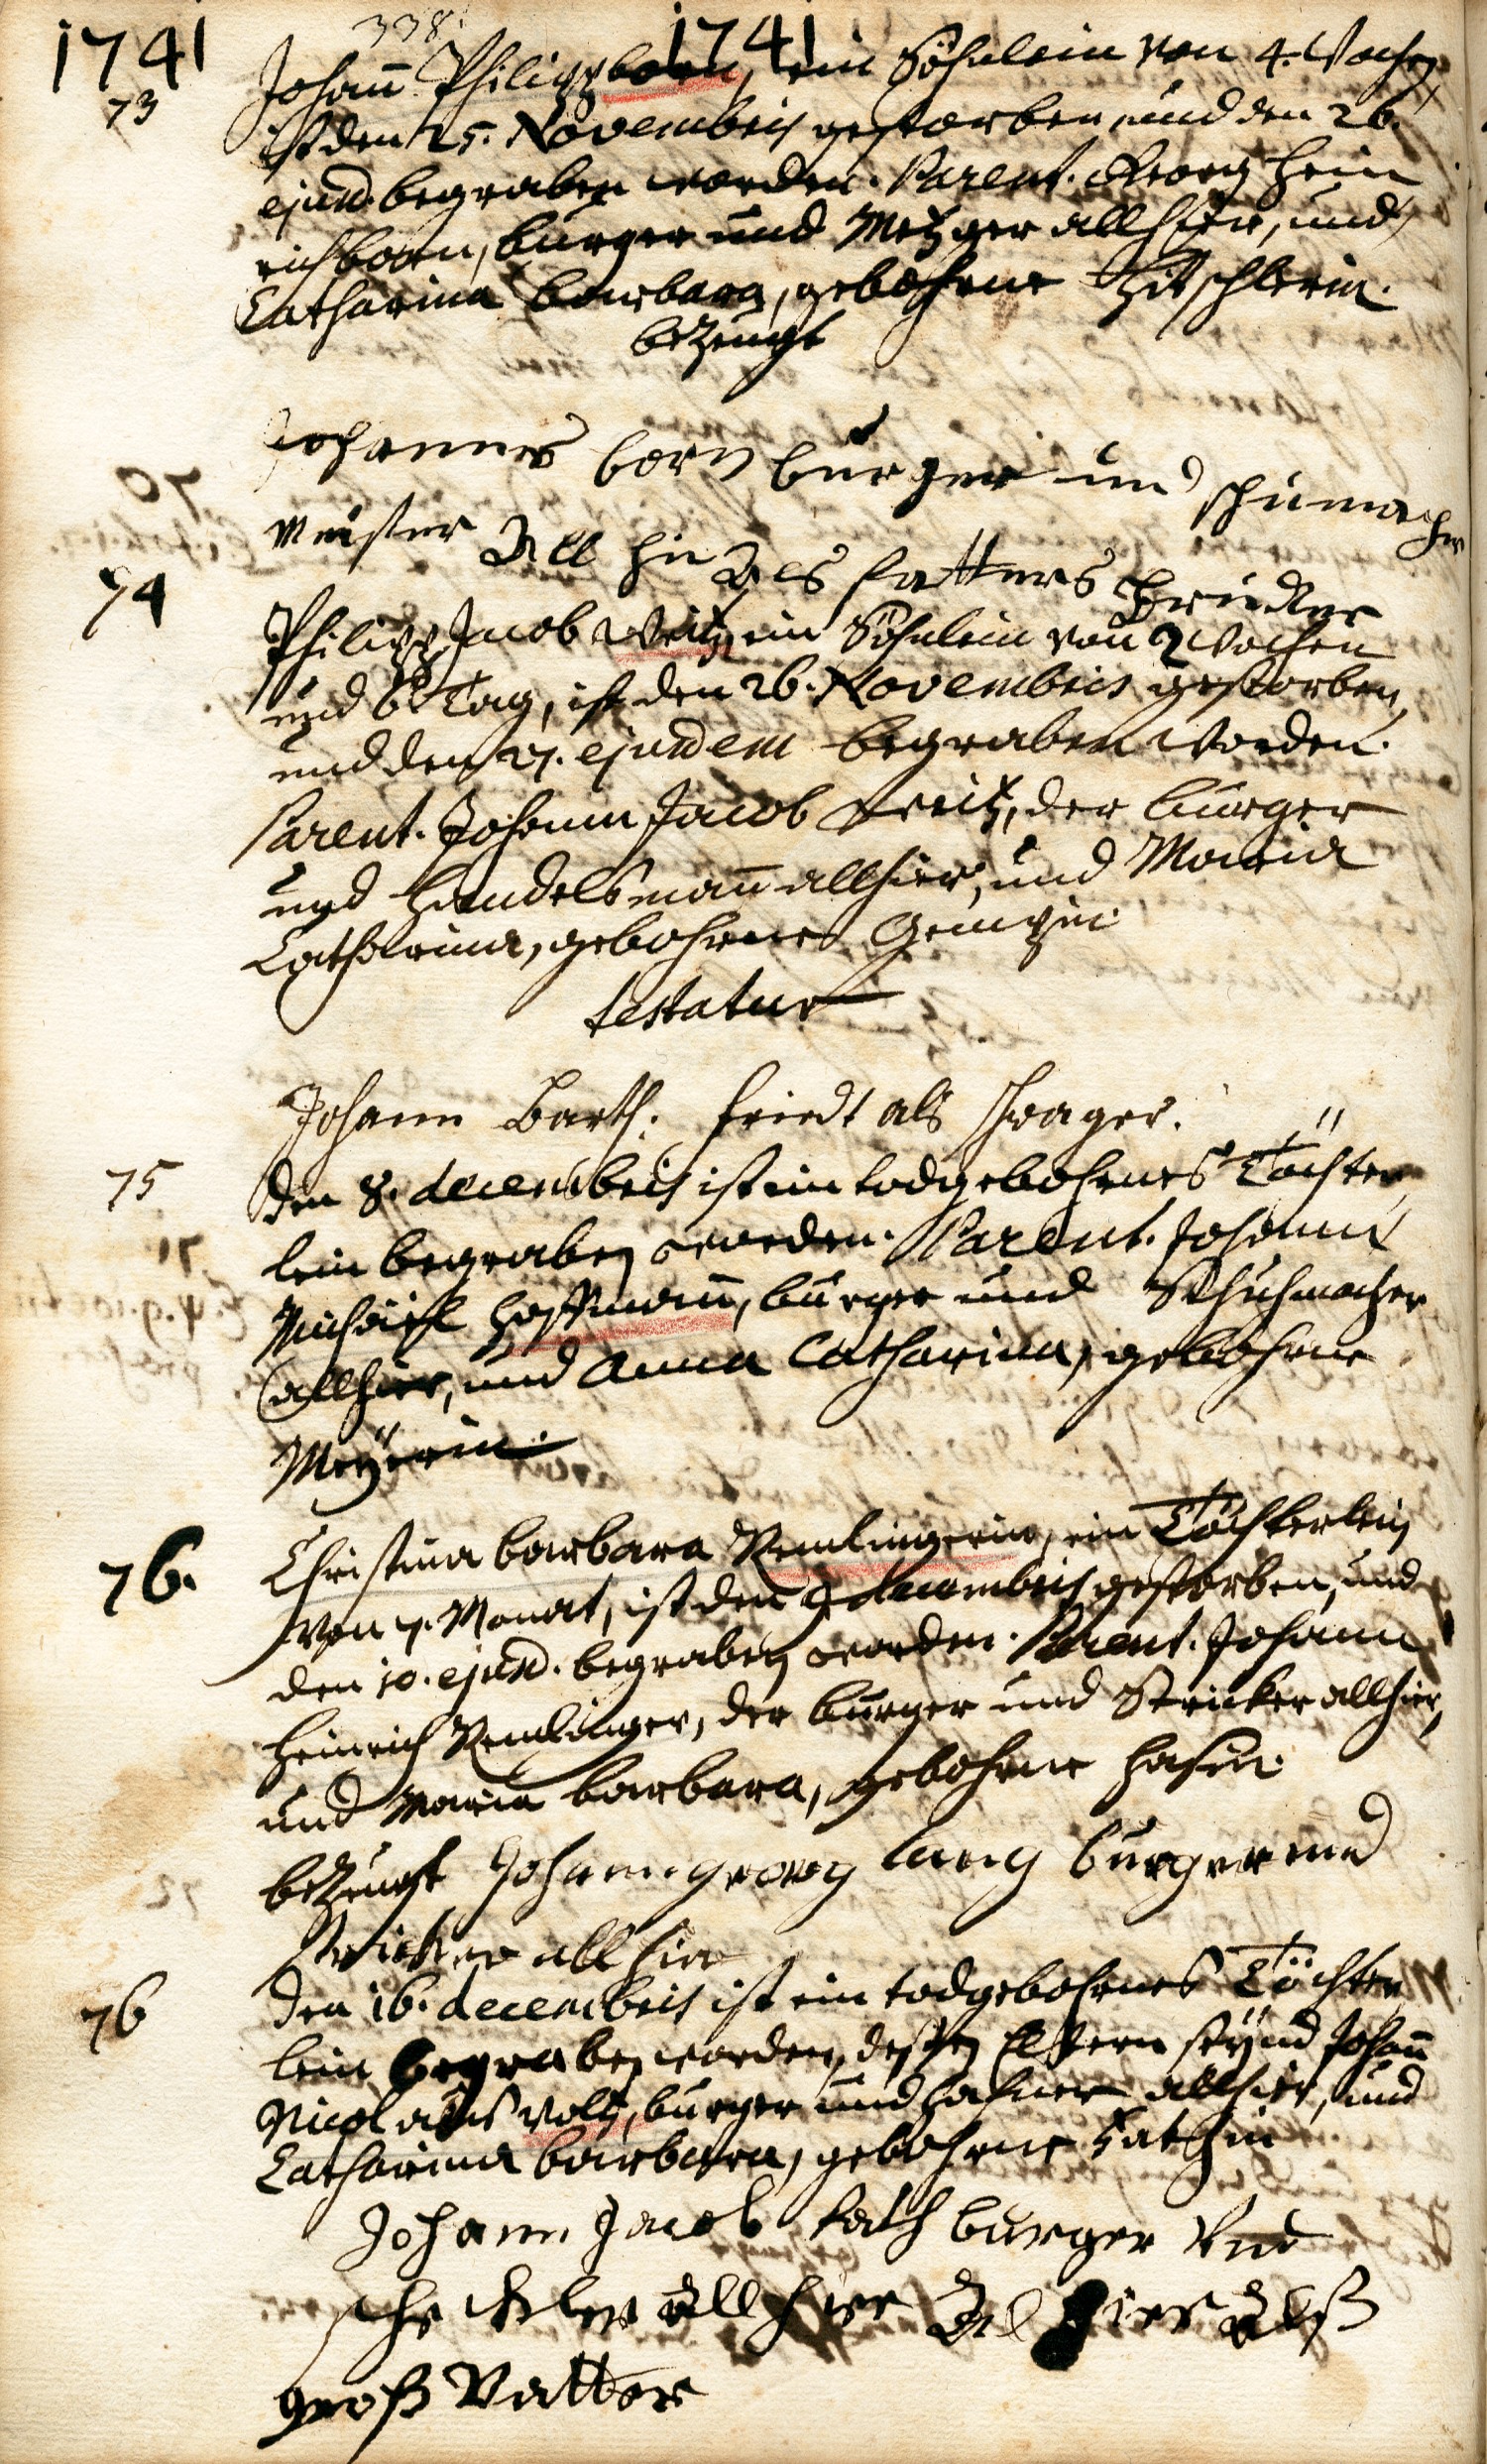 1741 338 1741
73 Johañ Philipp born, ein Söhnlein von 4. Wochen,
ist den 25. Novembris gestorben, und den 26.
ejusd. begraben worden. Parent. Georg Hein
rich born, burger und Metzger allhier, und
Catharina barbara, gebohrne
bezeugt
Johannes born burger und schumacher
Meister all hie als fatters bruder
74 Philipp Jacob Weitz, ein Söhnlein von 2 Wochen
und 6 Tag, ist den 26. Novembris gestorben,
und den 27. ejusdem begraben worden.
Parent. Johann Jacob Weitz, der burger
und Handelsmañ allhier, und Maria
Catharina, gebohrne
testatur
Johann Barth. friedt als schwager.
75 Den 8. decembris ist ein todgebohrnes Töchter
lein begraben worden. Parent. Johann
Michael Hoffmañ, burger und Schuhmacher
allhier, und Anna Catharina, gebohrne
Meÿerin.
76. Christina barbara Remlingerin, ein Töchterlein
von 7. Monat, ist den 9 decembris gestorben, und
den 10. ejusd. begraben worden. Parent. Johann
Heinrich Remlinger, der burger und Stricker allhier,
und Maria barbara, gebohrne Hasin.
bezeugt Johann georg lang burger und
stricker all hier
76 Den 16. decembris ist ein todgebohrnes Töchter
lein begraben worden, dessen Eltern seÿnd Johañ
Nicolaus voltz, burger und Hafner allhier, und
Catharina barbara, gebohrne
Johann Jacob burger Und
all hier alß
groß Vatter